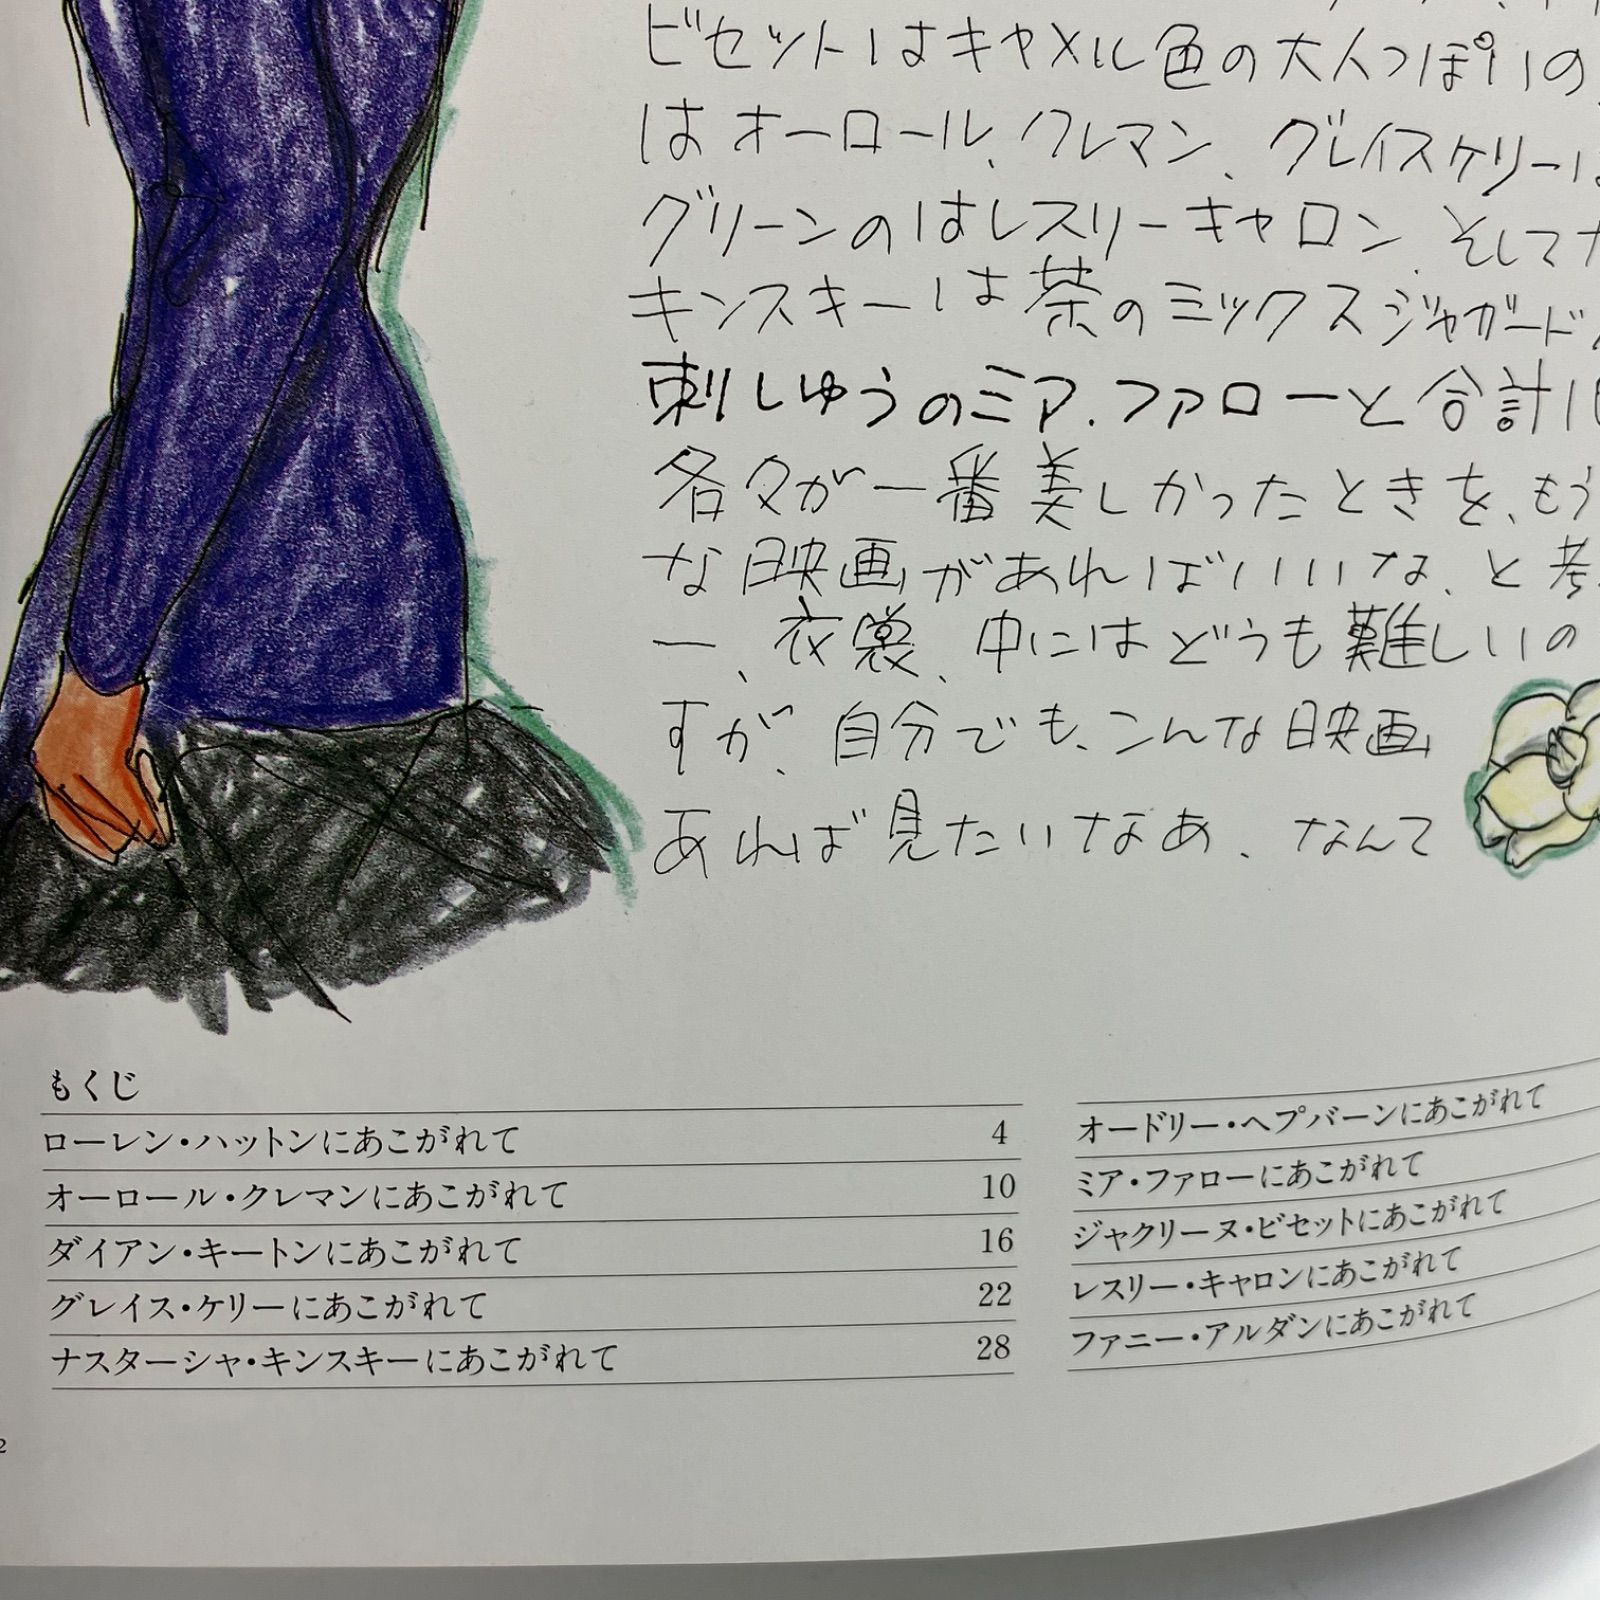 ビセットはキャメル色の大人っぽいの
はオーロール、クレマン、グレイスケリーは
グリーンのはレスリーキャロン、そしてナ
キンスキーは茶のミックスジャガード
刺しゅうのミア.ファローと合計10
各々が一番美しかったときを、もう
な映画があればいいな、と考
ー、衣裳、中にはどうも難しいの
すが、自分でも、こんな映画
あれば見たいなあ、なんて
もくじ
ローレン・ハットンにあこがれて 4
オーロール・クレマンにあこがれて 10
ダイアン・キートンにあこがれて 16
グレイス・ケリーにあこがれて 22
ナスターシャ・キンスキーにあこがれて 28
オードリー・ヘプバーンにあこがれて
ミア・ファローにあこがれて
ジャクリーヌ・ビセットにあこがれて
レスリー・キャロンにあこがれて
ファニー・アルダンにあこがれて
2